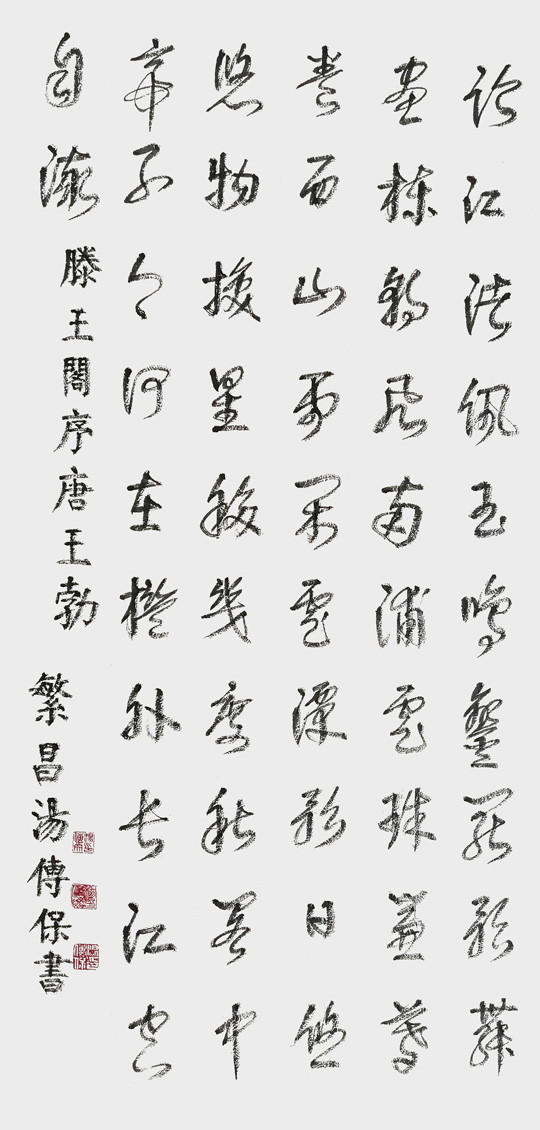 臨江渚佩玉鳴鑾罷歌舞
畫棟朝飛南浦雲珠簾暮
卷西山雨閑雲潭影日悠
悠物換星移幾度秋閣中
帝子今何在檻外長江空
自流
滕王閣序唐王勃
繁昌湯傳保書